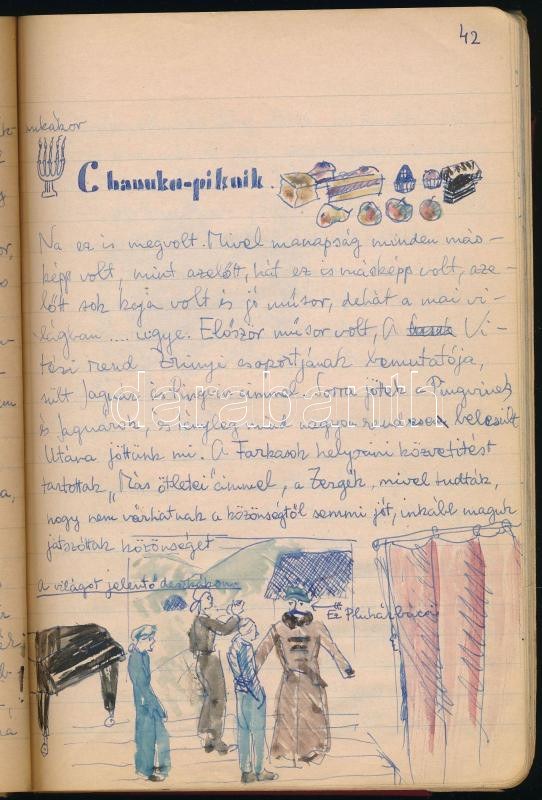 42
Chanuka-piknik.
Na ez is megvolt. Mivel manapság minden más-
képp volt, mint azelőtt, hát ez is másképp volt, aze-
lőtt sok kaja volt és jó műsor, dehát a mai vi-
lágban .... ugye. Először műsor volt, A Vi-
tézi rend Zrinyi csoportjának bemutatója,
sült Jaguár és Pingvin címmel. Sorra jöttek Pingvinek
és Jaguárok, és mind nagyon belesült
Utána jöttünk mi. A Farkasok helyszíni közvetítést
tartottak „Más ötletei" címmel, a Zergék, mivel tudták,
hogy nem várhatnak a közönségtől semmi jót, inkább maguk
játszottak közönséget
A világot jelentő deszkákon:
Ez Pluhárbácsi
darabanth